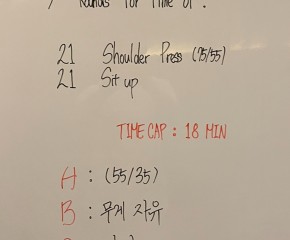 Rounds for Time of :
21 Shoulder Press (75/55)
21 Sit up
TIME CAP : 18 MIN
A : (55/35)
B : 무게 자유